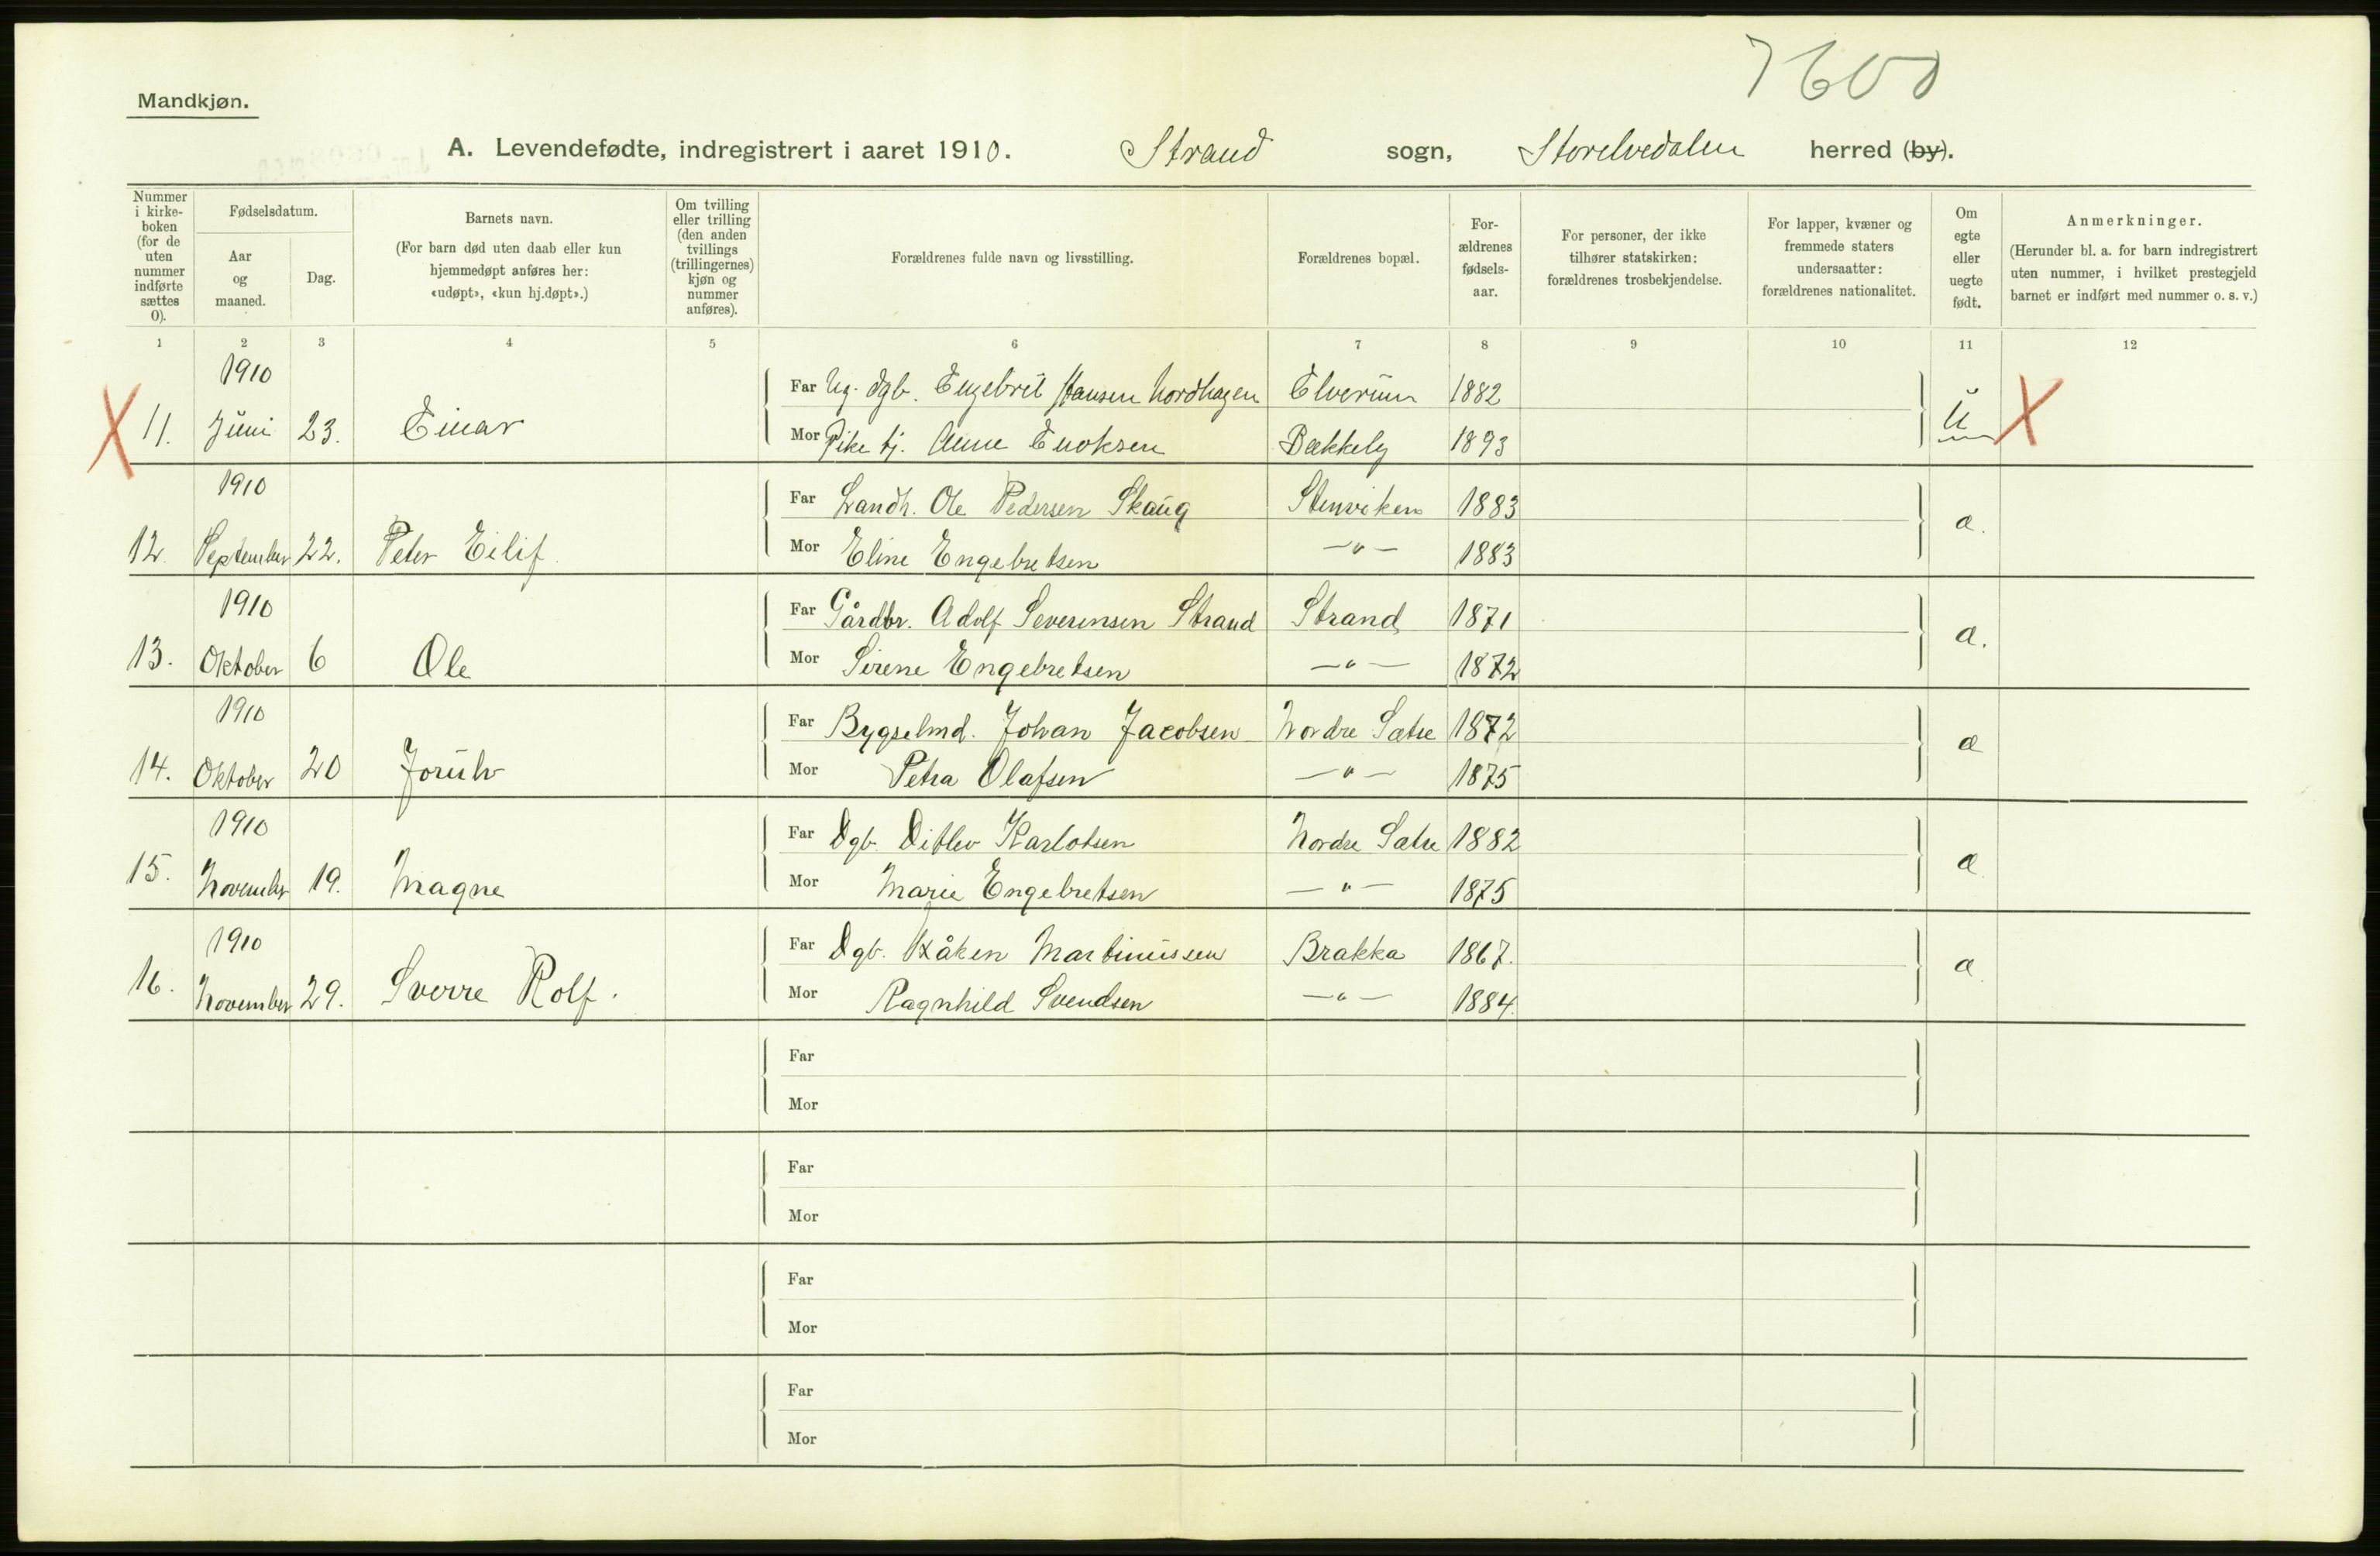 7600
Mandkjøn.
A. Levendefødte, indregistrert i aaret 1910. Strand sogn, Storelvedalen herred (by).
Nummer i kirke-boken (for de uten nummer indførte sættes 0).
Fødselsdatum.
Aar og maaned.
Dag.
Barnets navn.
(For barn død uten daab eller kun hjemmedøpt anføres her: «udøpt», «kun hj.døpt».)
Om tvilling eller trilling (den anden tvillings (trillingernes) kjøn og nummer anføres).
Forældrenes fulde navn og livsstilling.
Forældrenes bopæl.
For-ældrenes fødsels-aar.
For personer, der ikke tilhører statskirken: forældrenes trosbekjendelse.
For lapper, kvæner og fremmede staters undersaatter: forældrenes nationalitet.
Om egte eller uegte født.
Anmerkninger.
(Herunder bl. a. for barn indregistrert uten nummer, i hvilket prestegjeld barnet er indført med nummer o. s. v.)
1 2 3 4 5 6 7 8 9 10 11 12
1910
Far Ug. dgb. Engebret Hansen Nordhagen Elverum 1882
X 11. Juni 23. Einar u X
Mor Pike tj. Anne Enoksen Bækkely 1893
1910
Far Landh. Ole Pedersen Skaug Stenviken 1883
12. September 22. Peter Eilif a.
Mor Eline Engebretsen —"— 1883
1910
Far Gårdbr. Adolf Severinsen Strand Strand 1871
13. Oktober 6 Ole a.
Mor Sirene Engebretsen —"— 1872
1910
Far Bygselmd. Johan Jacobsen Nordre Sætre 1872
14. Oktober 20 a
Mor Petra Olafsen —"— 1875
1910
Far Dgb. Ditlev Karlotsen Nordre Sætre 1882
15. November 19. Magne a
Mor Marie Engebretsen —"— 1875
1910
Far Dgb. Håken Martinussen Brakka 1867.
16. November 29. Sverre Rolf. a
Mor Ragnhild Svendsen —"— 1884.
Far
Mor
Far
Mor
Far
Mor
Far
Mor